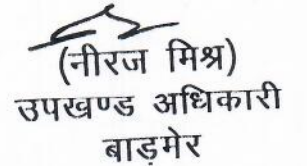 (नीरज मिश्र)
उपखण्ड अधिकारी
बाड़मेर